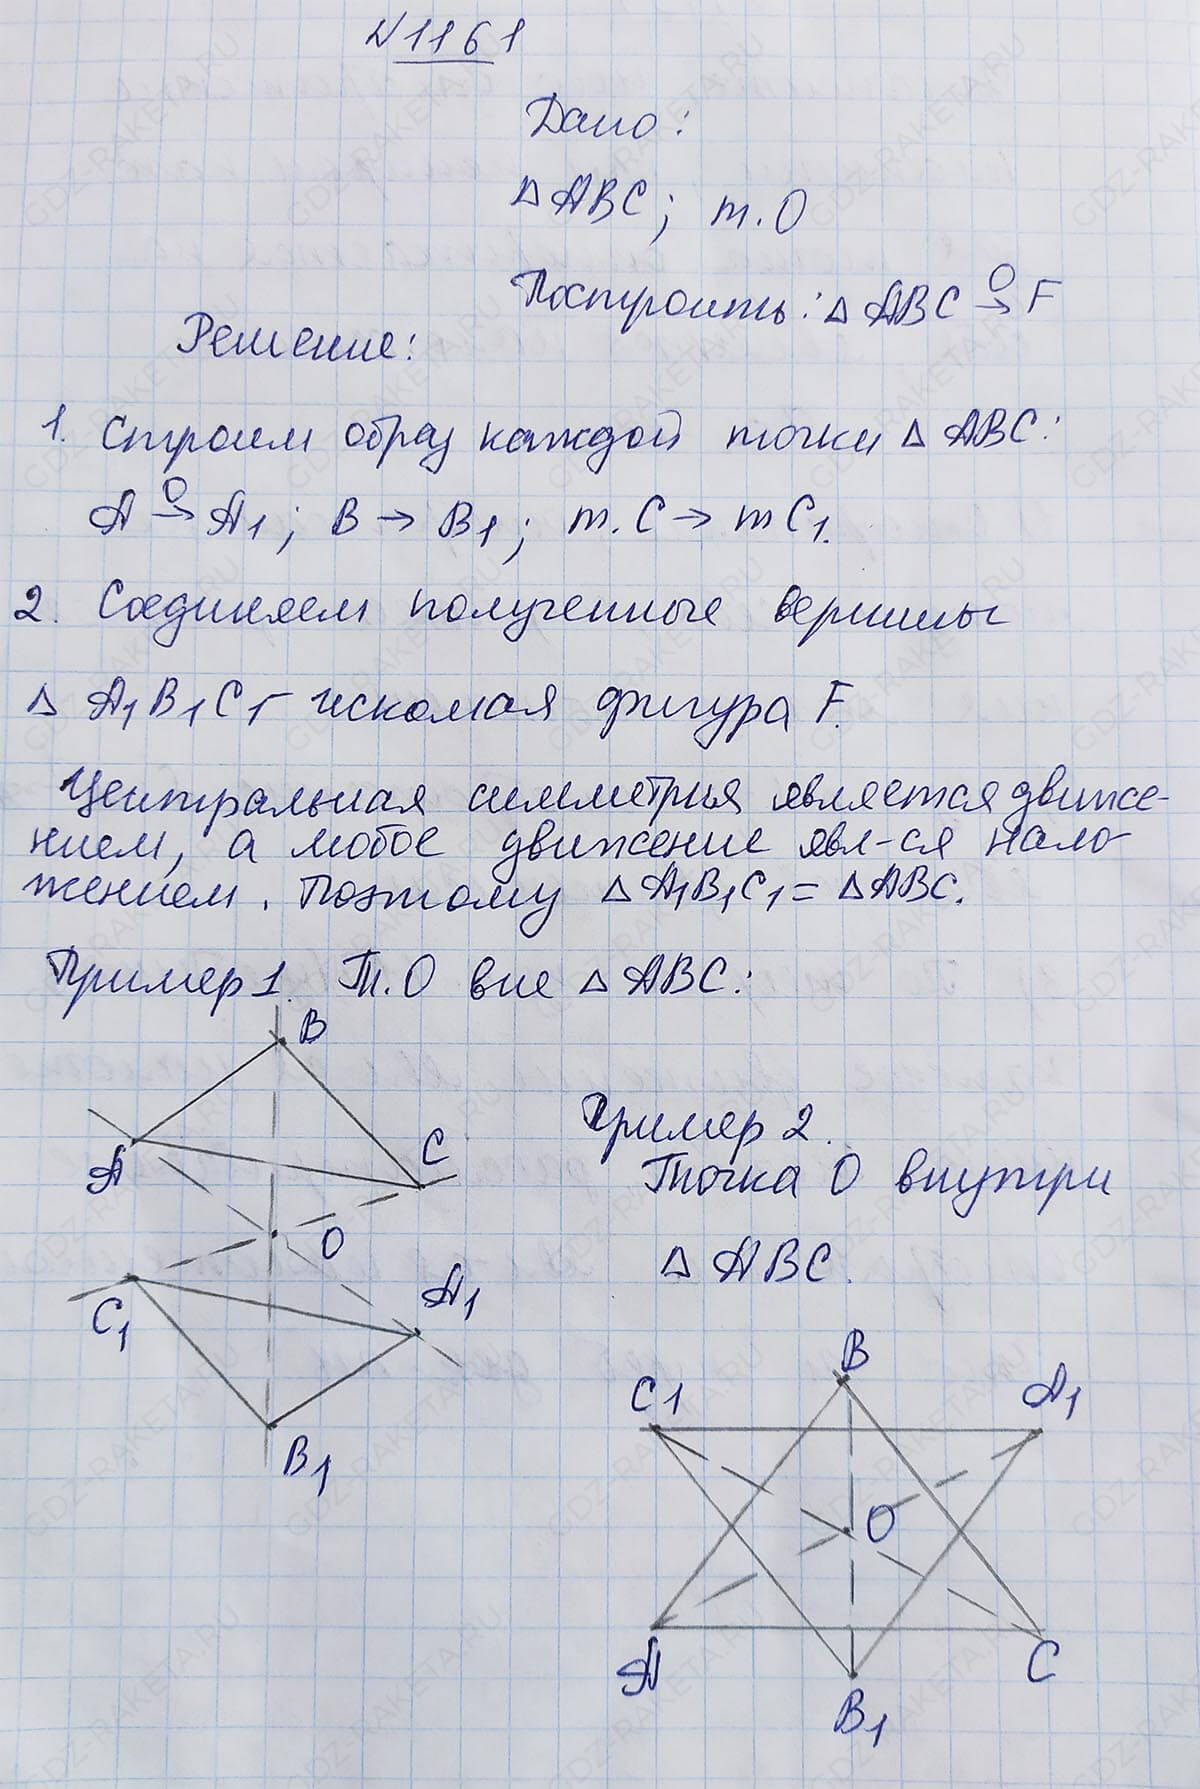 №1161
Дано:
△ABC; т.O
Построить: △ABC O→ F
Решение:
1. Строим образ каждой точки △ABC:
A O→ A1; B→B1; т.C→тC1.
2. Соединяем полученные вершины
△ A1B1C1 - искомая фигура F.
Центральная симметрия является движе-
нием, а любое движение явл-ся нало-
жением. Поэтому △A1B1C1=△ABC.
Пример 1. Т.O вне △ABC:
B
A
C
O
C1
A1
B1
Пример 2.
Точка O внутри
△ ABC.
B
C1
A1
O
A
C
B1
GDZ-RAKETA.RU